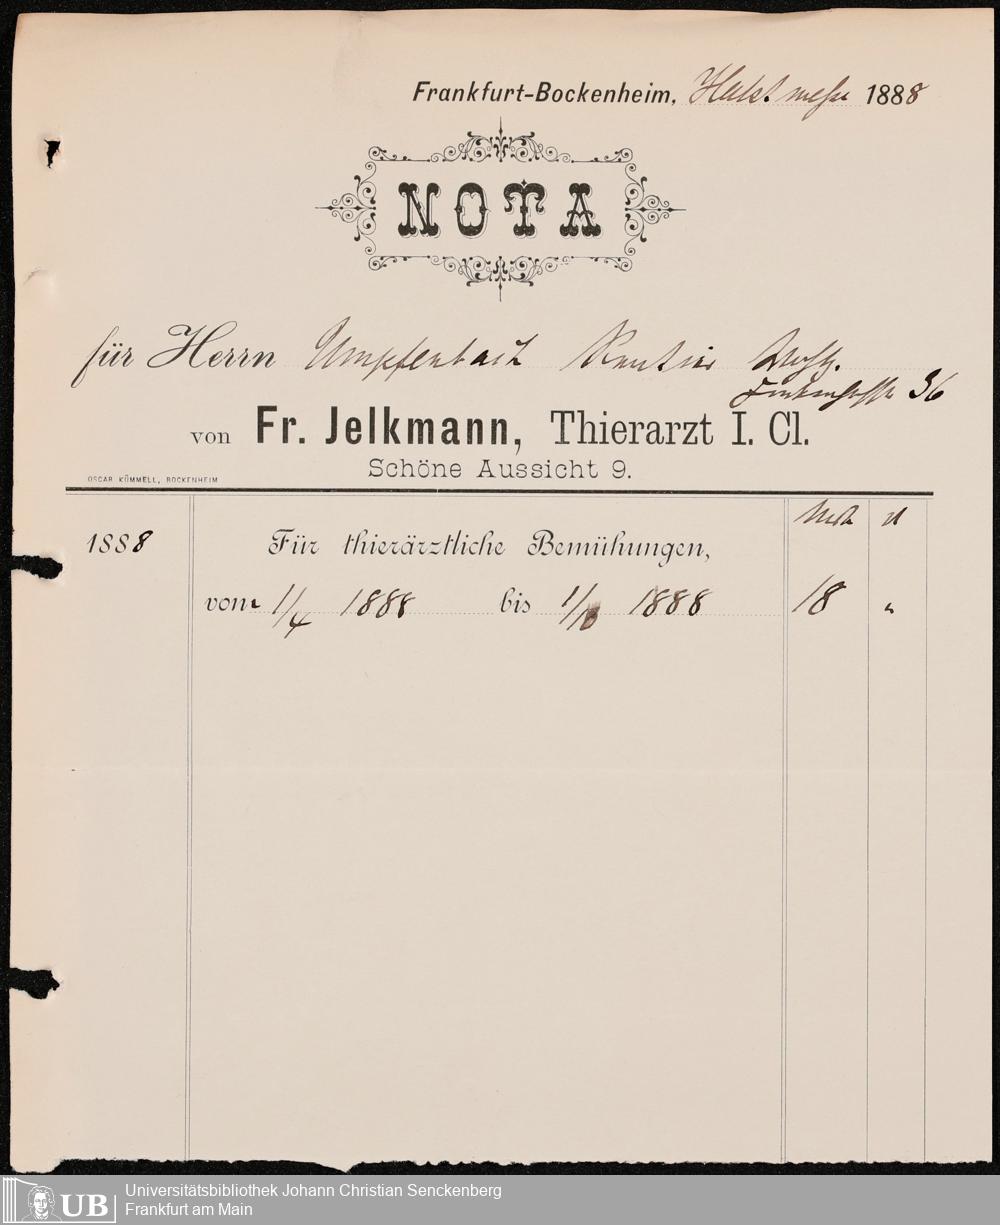 Frankfurt-Bockenheim, Herbstmesse 1888
NOTA
für Herrn Umpfenbach Rentier
36
von Fr. Jelkmann, Thierarzt I. Cl.
Schöne Aussicht 9.
OSCAR KÜMMELL, BOCKENHEIM
1888 Für thierärztliche Bemühungen,
vom 1/4 1888 bis 1/10 1888 18 "
UB Universitätsbibliothek Johann Christian Senckenberg
Frankfurt am Main